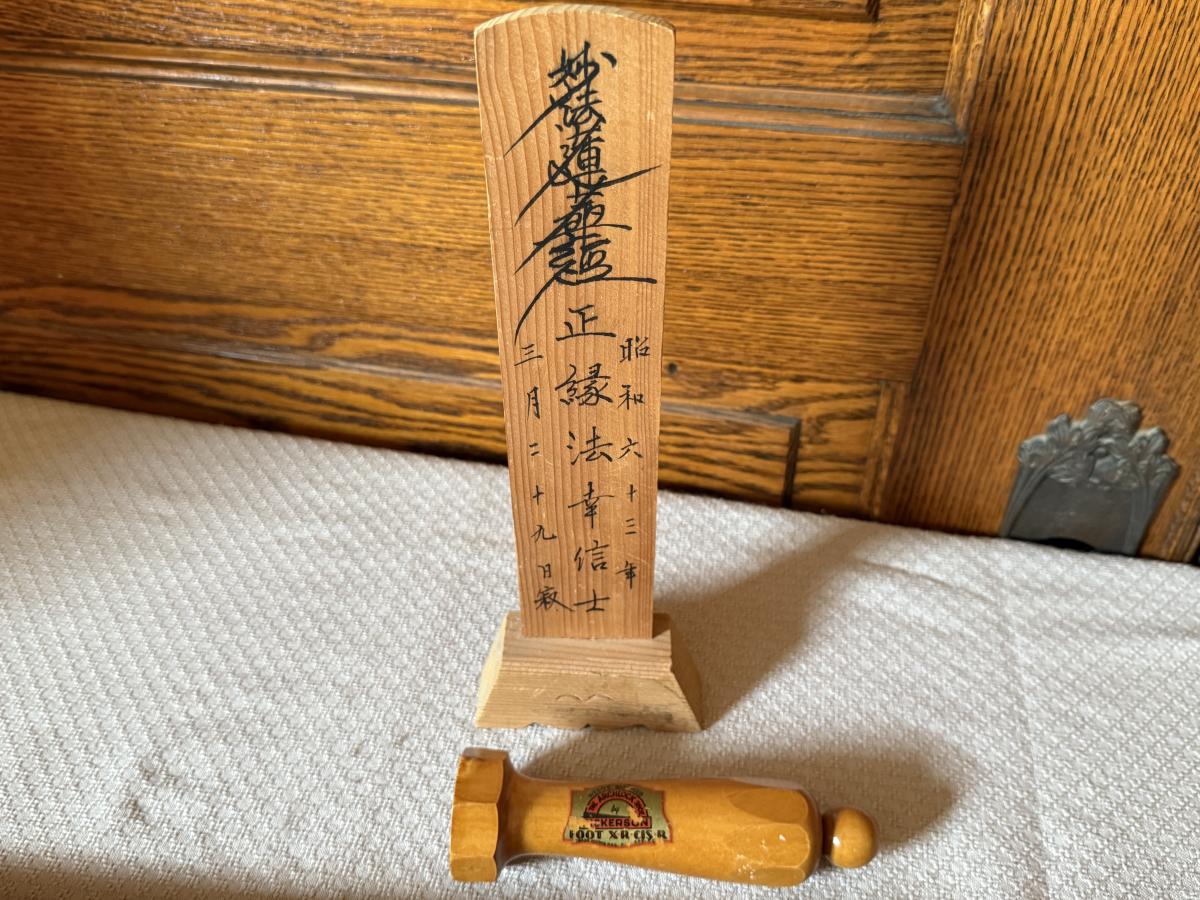 妙法蓮華經正縁法幸信士
昭和六十三年
三月二十九日寂
THE ARCHLOCK SHOE
by
ICKERSON
FOOT X-R-CIS-R